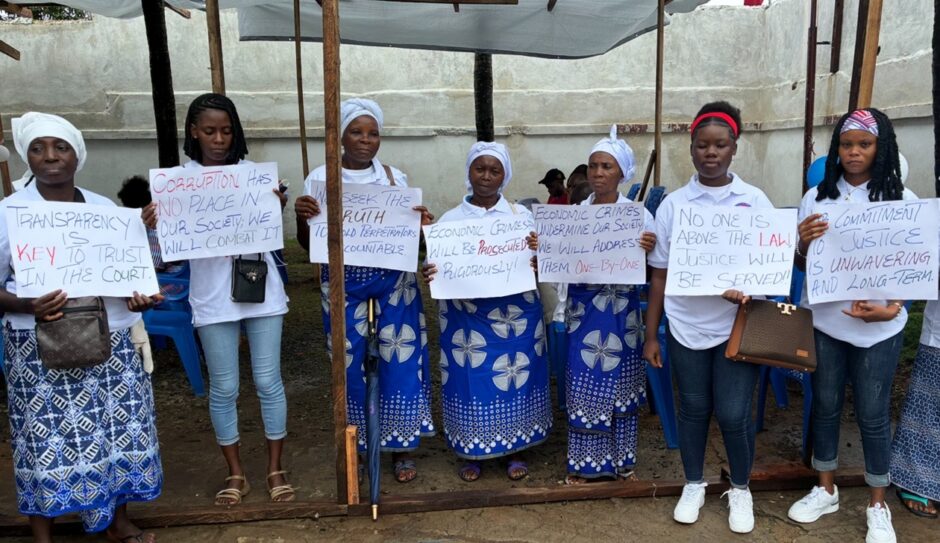 TRANSPARENCY
IS
KEY TO TRUST
IN THE COURT.
CORRUPTION HAS
NO PLACE IN
OUR SOCIETY; WE
WILL COMBAT IT
SEEK THE
TRUTH
PERPETRATORS
ACCOUNTABLE
ECONOMIC CRIMES
WILL BE PROSECUTED
RIGOROUSLY!
ECONOMIC CRIMES
UNDERMINE OUR SOCIETY
WE WILL ADDRESS
THEM ONE-BY-ONE
NO ONE IS
ABOVE THE LAW
JUSTICE WILL
BE SERVED!!
COMMITMENT
TO JUSTICE
IS UNWAVERING
AND LONG-TERM.